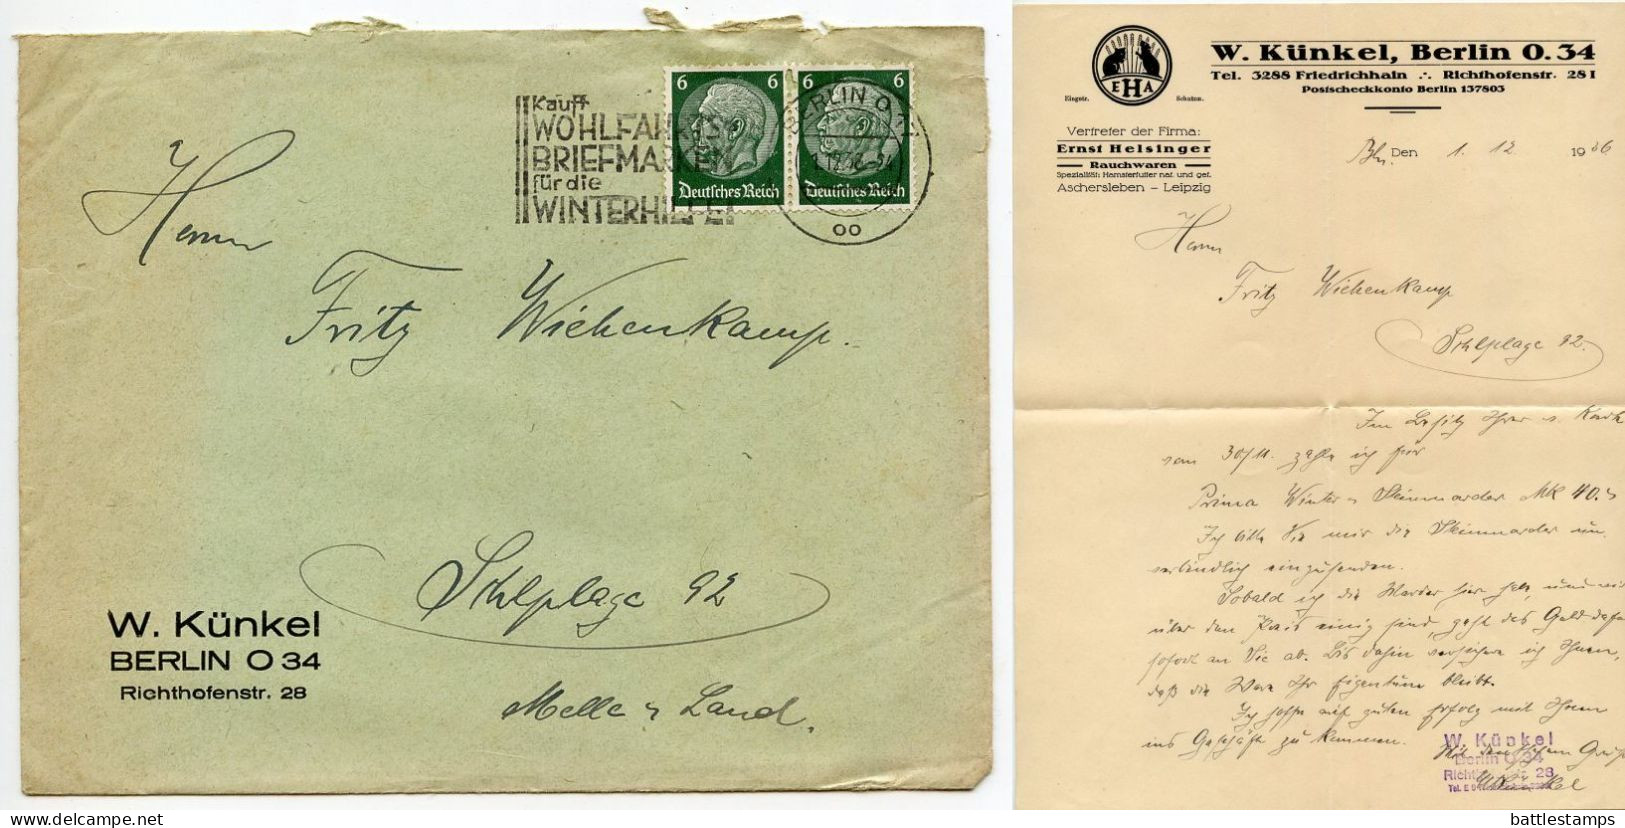 6 6 6 6
Kauft
WOHLFAHRTS
BRIEFMARKEN
für die
WINTERHILFE!
Deutsches Reich Deutsches Reich
BERLIN O
oo
Herrn
Fritz Wiehenkamp.
Schlplage 92
Melle-Land.
W. Künkel
BERLIN O 34
Richthofenstr. 28
EHA
Eingetr. Schutzm.
W. Künkel, Berlin O. 34
Tel. 3288 Friedrichhain ∴ Richthofenstr. 28 I
Postscheckkonto Berlin 137803
Vertreter der Firma:
Ernst Helsinger
Rauchwaren
Spezialität: Hamsterfutter nat. und gef.
Aschersleben – Leipzig
Bln. Den 1. 12 1936
Herrn
Fritz Wiehenkamp
Schlplage 92.
Im Besitz Ihrer w. Karte
vom 30/11. zahle ich für
Prima Winter-Steinmarder Mk 40.-
Ich bitte Sie mir die Steinmarder un
verbindlich einzusenden.
Sobald ich die Marder hier habe, und wir
über den Preis einig sind geht das Geld dafür
sofort an Sie ab. Bis dahin versichere ich Ihnen,
daß die Ware Ihr Eigentum bleibt.
Ich hoffe auf guten Erfolg mit Ihnen
ins Geschäft zu kommen.
Mit deutschem Gruß
W. Künkel
Berlin O 34
28
WKünkel
battlestamps